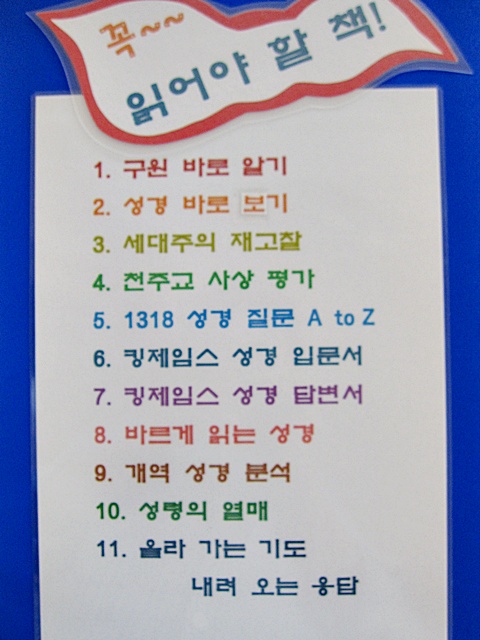 꼭~~
읽어야 할 책!
1. 구원 바로 알기
2. 성경 바로 보기
3. 세대주의 재고찰
4. 천주교 사상 평가
5. 1318 성경 질문 A to Z
6. 킹제임스 성경 입문서
7. 킹제임스 성경 답변서
8. 바르게 읽는 성경
9. 개역 성경 분석
10. 성령의 열매
11. 올라 가는 기도
내려 오는 응답